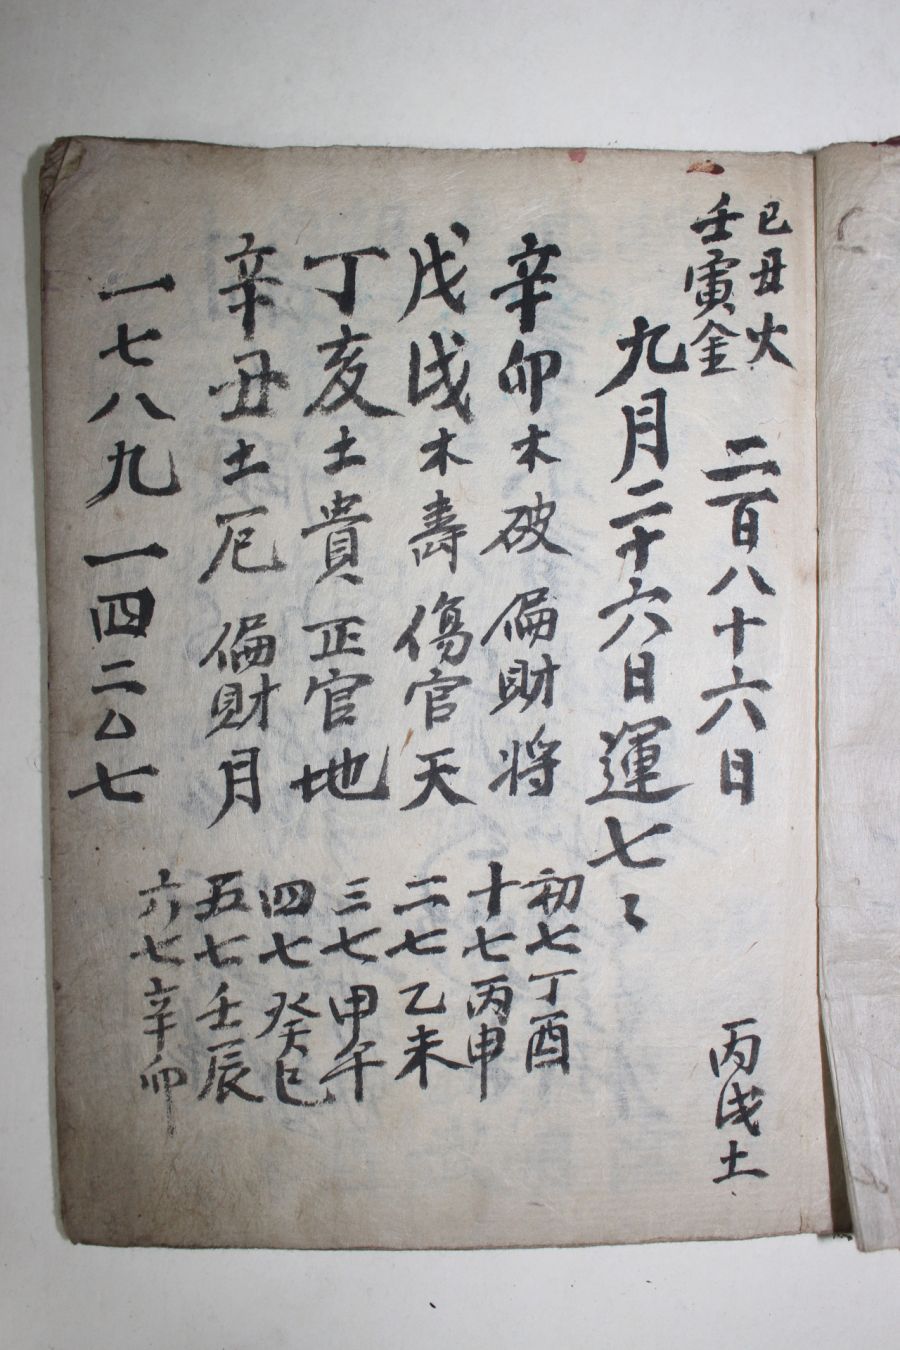 己丑火
壬寅金
二百八十六日
丙戌土
九月二十六日運七々
辛卯木破偏財将
戊戌木壽傷官天
丁亥土貴正官地
辛丑土厄偏財月
一七八九一四二厶七
初七丁酉
十七丙申
二七乙未
三七甲午
四七癸巳
五七壬辰
六七辛卯